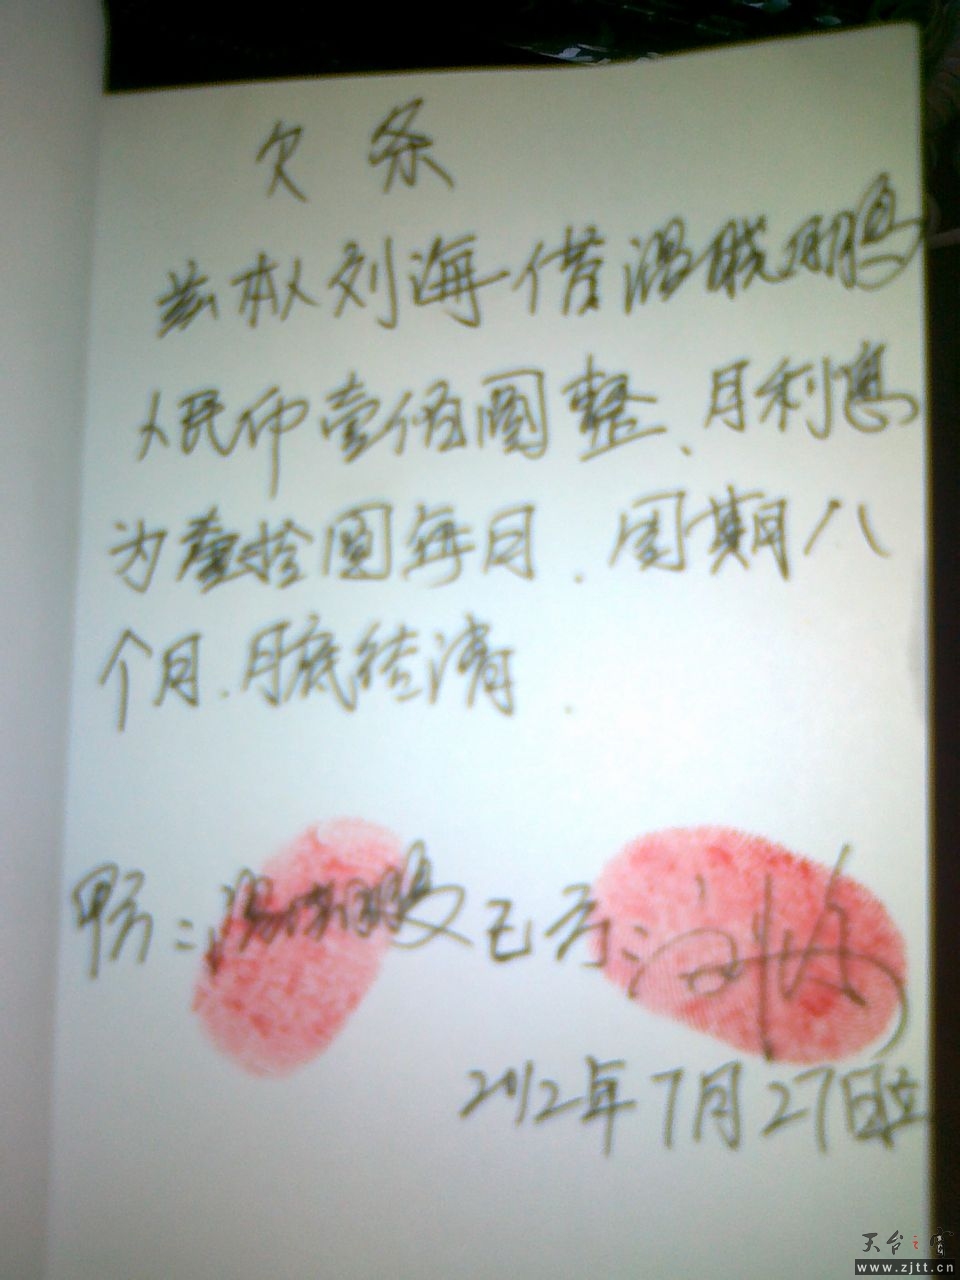 欠 条
兹本人刘海借温晓鹏
人民币壹佰圆整、月利息
为壹拾圆每月.周期八
个月.月底结清.
甲方:温晓鹏 乙方:刘海
2012年7月27日立
天台之窗
www.zjtt.cn